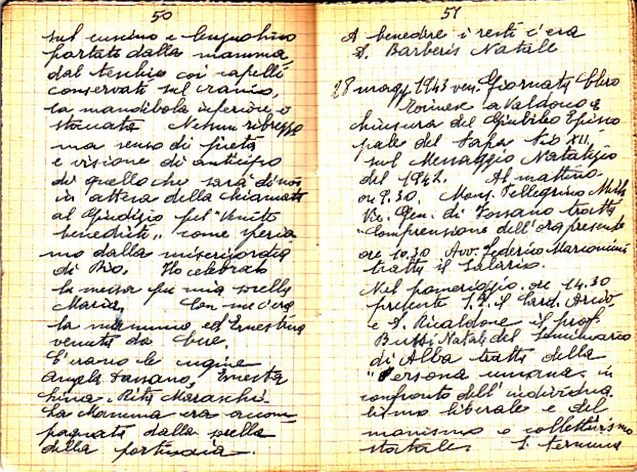 50
sul cuscino e lenzuolino
portato dalla mamma,
dal teschio coi capelli
conservati sul cranio,
la mandibola inferiore è
staccata. Nessun ribrezzo
ma senso di pietà
e visione di anticipo
di quello che sarà di noi
in attesa della chiamata
al Giudizio pel "Venite
benedicti", come speria
mo dalla misericordia
di Dio. Ho celebrato
la messa per mia sorella
Maria. Con me c'era
la mamma, ed Ernestina
venuta da
C'erano le cugine
Angela Fassano, Ernesta
Lina, Rita Maraschi.
La Mamma era accom
pagnata dalla sorella
della portinaia.
51
A benedire i resti c'era
D. Barberis Natale
28 maggo 1943 ven. Giornata Clero
Torinese a Valdocco e
chiusura del Giubileo Episco
pale del Papa Pio XII,
sul Messaggio Natalizio
del 1942. Al mattino
ore 9.30. Mons. Pellegrino Mich
Vic. Gen. di Fossano tratta
"Comprensione dell'ora presente
ore 10.30 Avv. Federico Marconcini
tratta il Salario.
Nel pomeriggio ore 14.30
presente S.E. il Card. Arciv
e D. Ricaldone il prof.
Bussi Natale del Seminario
di Alba tratta della
"Persona umana in
confronto dell'individua
lismo liberale e del
marxismo o collettivismo
statale. Si termina